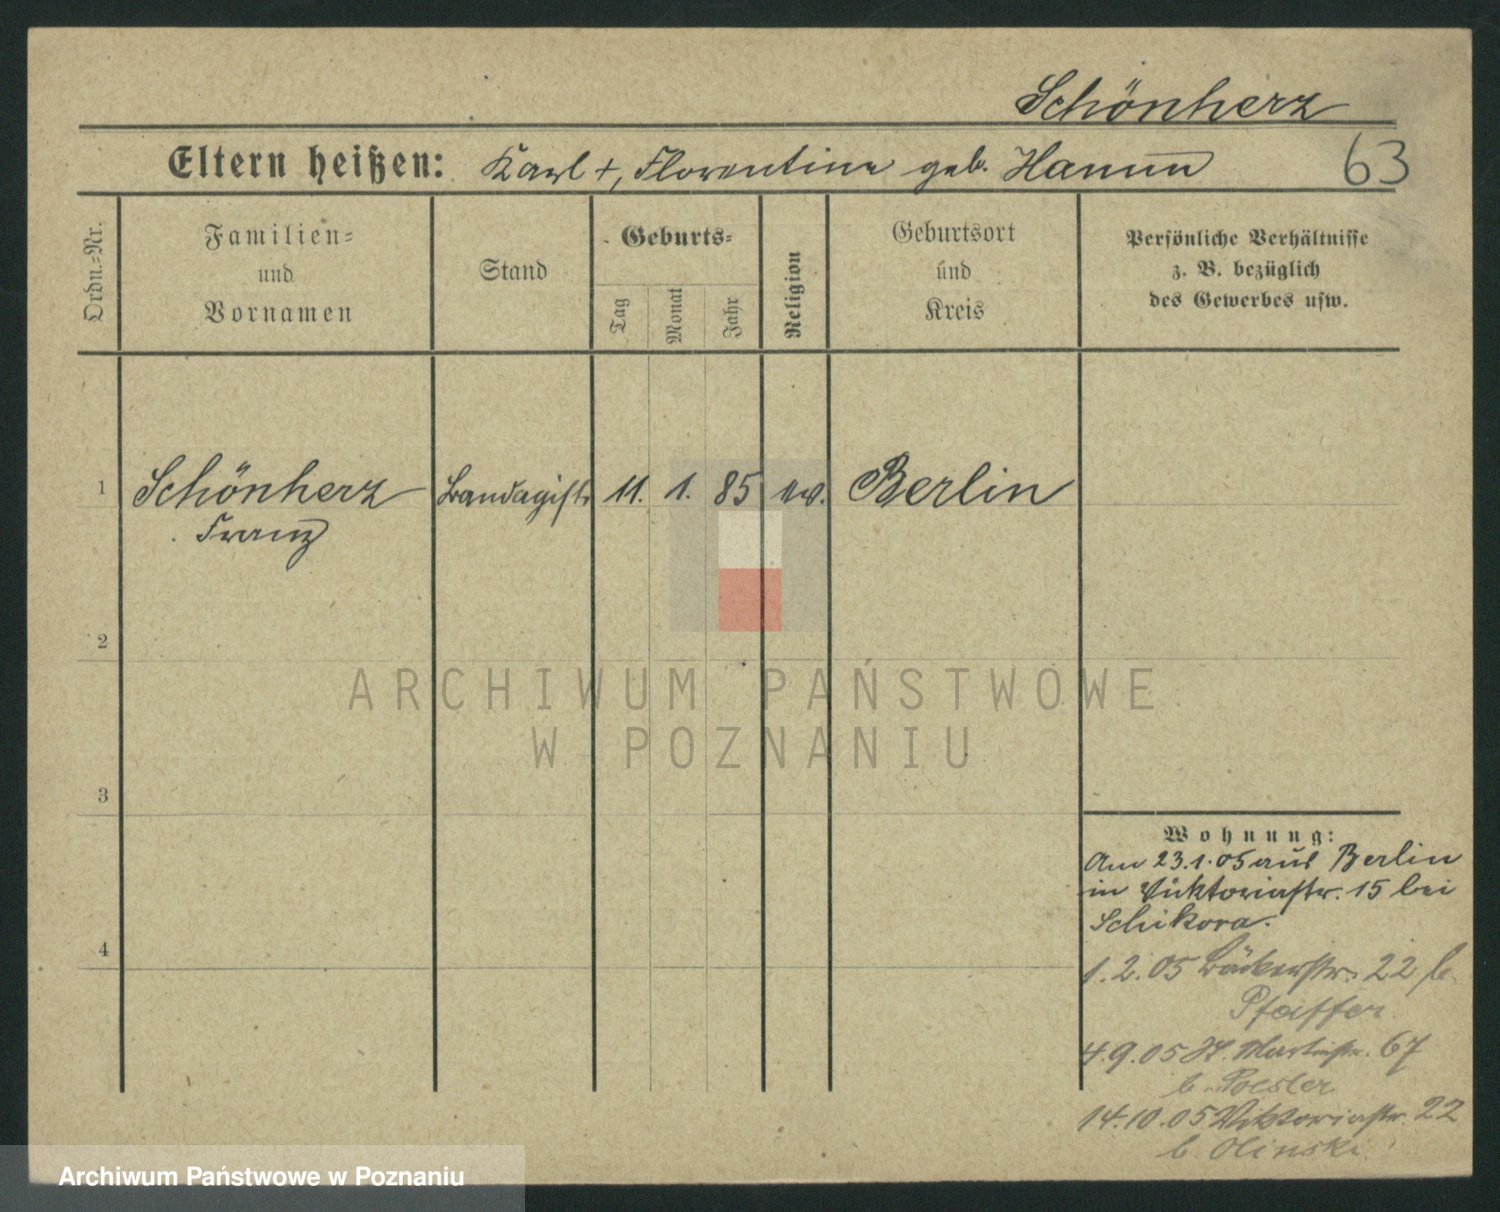 Schönherz
Eltern heißen: Karl +, Florentine geb. Hamm
63
Ordn.-Nr.
Familien-
und
Vornamen
Stand
Geburts-
Tag
Monat
Jahr
Religion
Geburtsort
und
Kreis
Persönliche Verhältnisse
z. B. bezüglich
des Gewerbes usw.
1 Schönherz Bandagist 11. 1. 85 ev. Berlin
Franz
2
3
4
Wohnung:
Am 23.1.05 aus Berlin
in Viktoriastr. 15 bei
Schikora.
1.2.05 Bäckerstr. 22 b.
Pfeiffer
4.9.05 St. Martinstr. 67
b.
14.10.05 Viktoriastr. 22
b. Olinski
ARCHIWUM PAŃSTWOWE
W POZNANIU
Archiwum Państwowe w Poznaniu